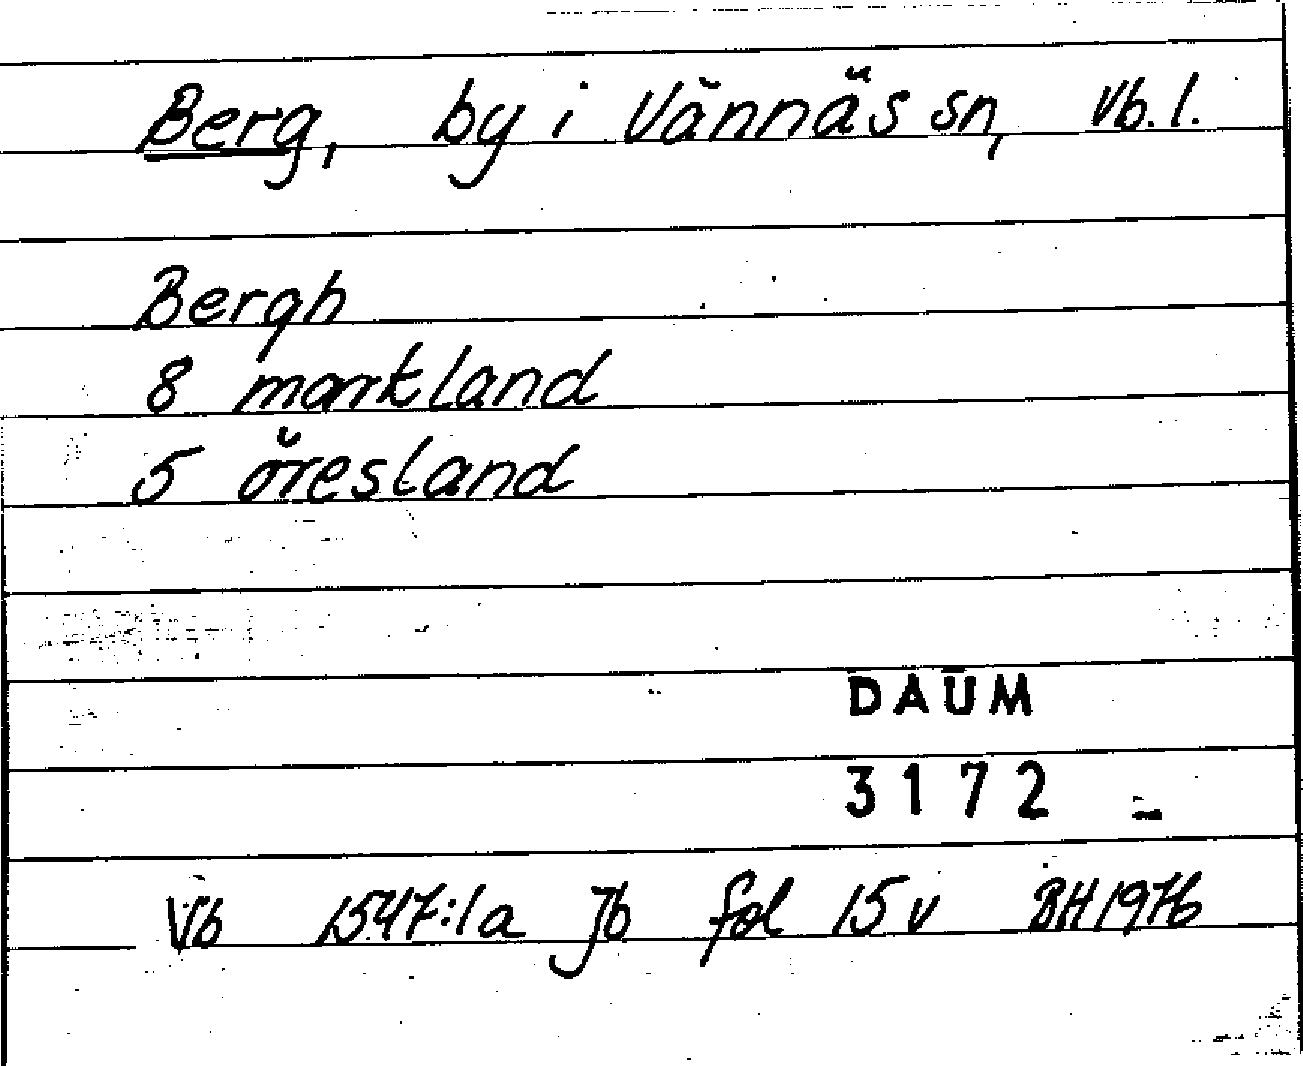 Berg, by i Vännäs sn, Vb. l.
Bergh
8 markland
5 öresland
DAUM
3172
Vb 1547:1a Jb fol 15 v BH 1976